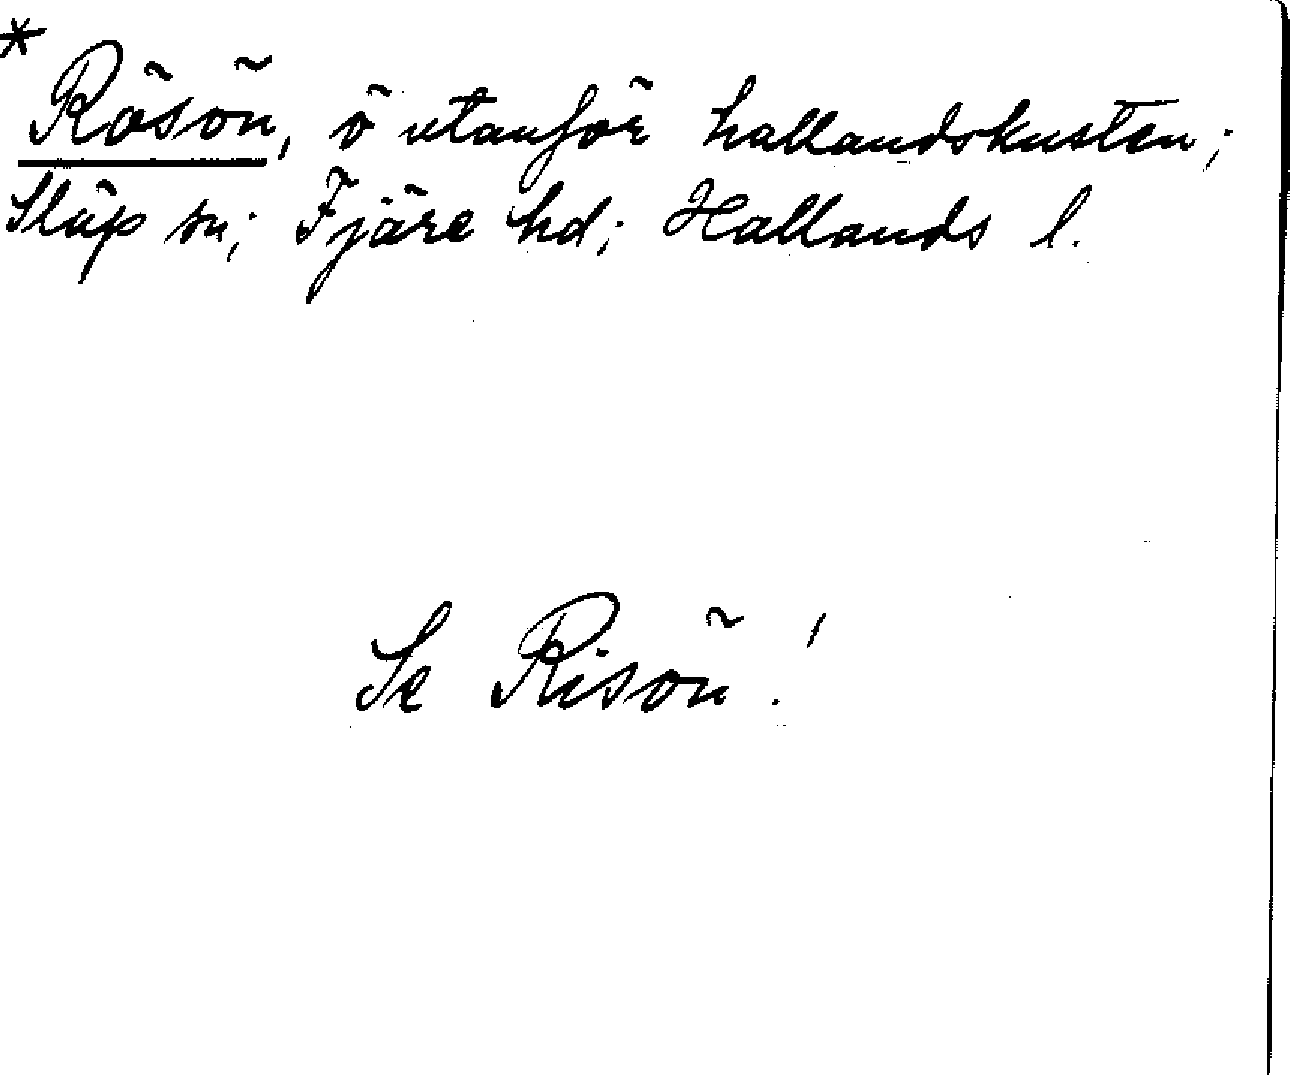 * Rösön, ö utanför hallandskusten;
Släp sn; Fjäre hd; Hallands l.
Se Risön!